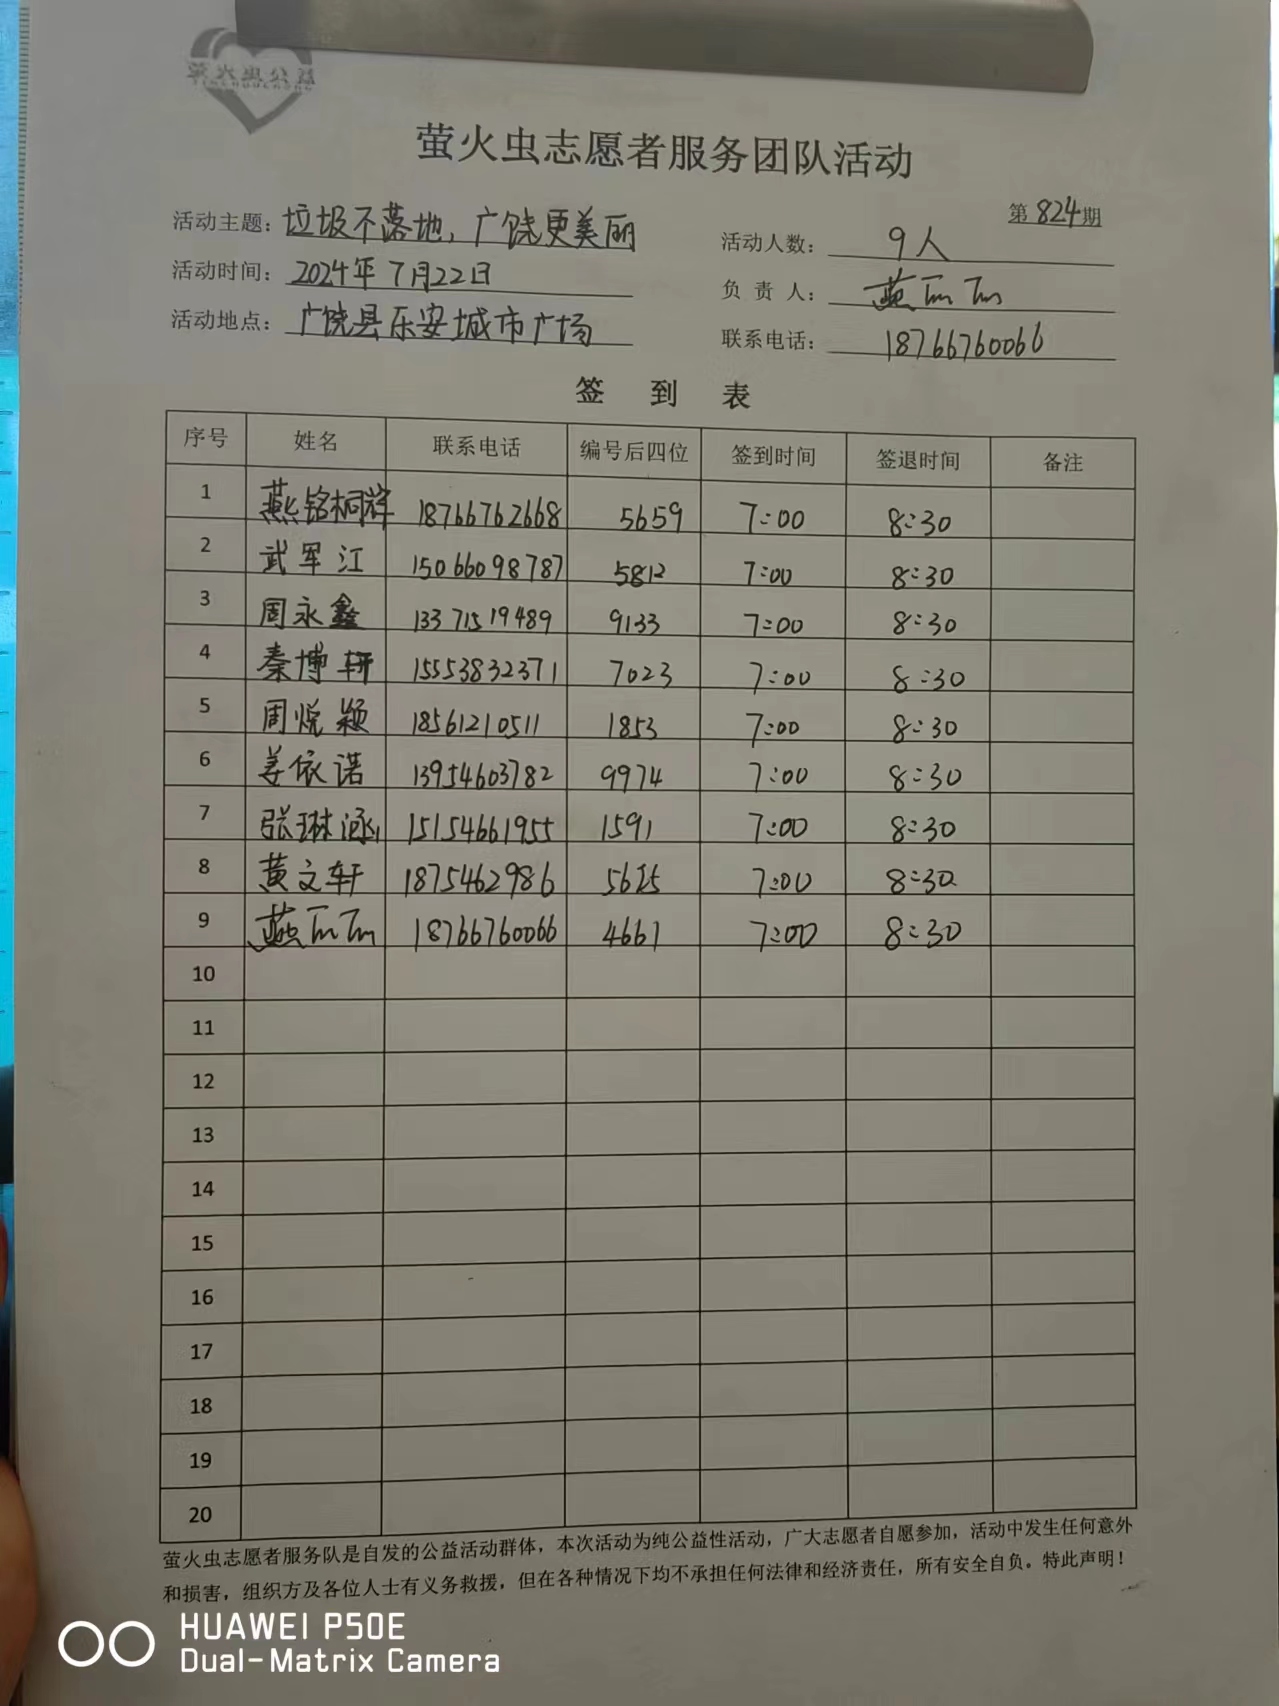 萤火虫公益
萤火虫志愿者服务团队活动
第824期
活动主题：垃圾不落地，广饶更美丽
活动人数：9人
活动时间：2024年7月22日
负责人：燕丽丽
活动地点：广饶县乐安城市广场
联系电话：18766760066
签到表
序号 姓名 联系电话 编号后四位 签到时间 签退时间 备注
1 燕铭桐祥 18766762668 5659 7:00 8:30
2 武军江 15066098787 5812 7:00 8:30
3 周永鑫 13371519489 9133 7:00 8:30
4 秦博轩 15553832371 7023 7:00 8:30
5 周悦颖 18561210511 1853 7:00 8:30
6 姜依诺 13954603782 9974 7:00 8:30
7 张琳涵 15154661955 1591 7:00 8:30
8 黄文轩 1875462986 5625 7:00 8:30
9 燕丽丽 18766760066 4661 7:00 8:30
10
11
12
13
14
15
16
17
18
19
20
萤火虫志愿者服务队是自发的公益活动群体，本次活动为纯公益性活动，广大志愿者自愿参加，活动中发生任何意外
和损害，组织方及各位人士有义务救援，但在各种情况下均不承担任何法律和经济责任，所有安全自负。特此声明！
HUAWEI P50E
Dual-Matrix Camera